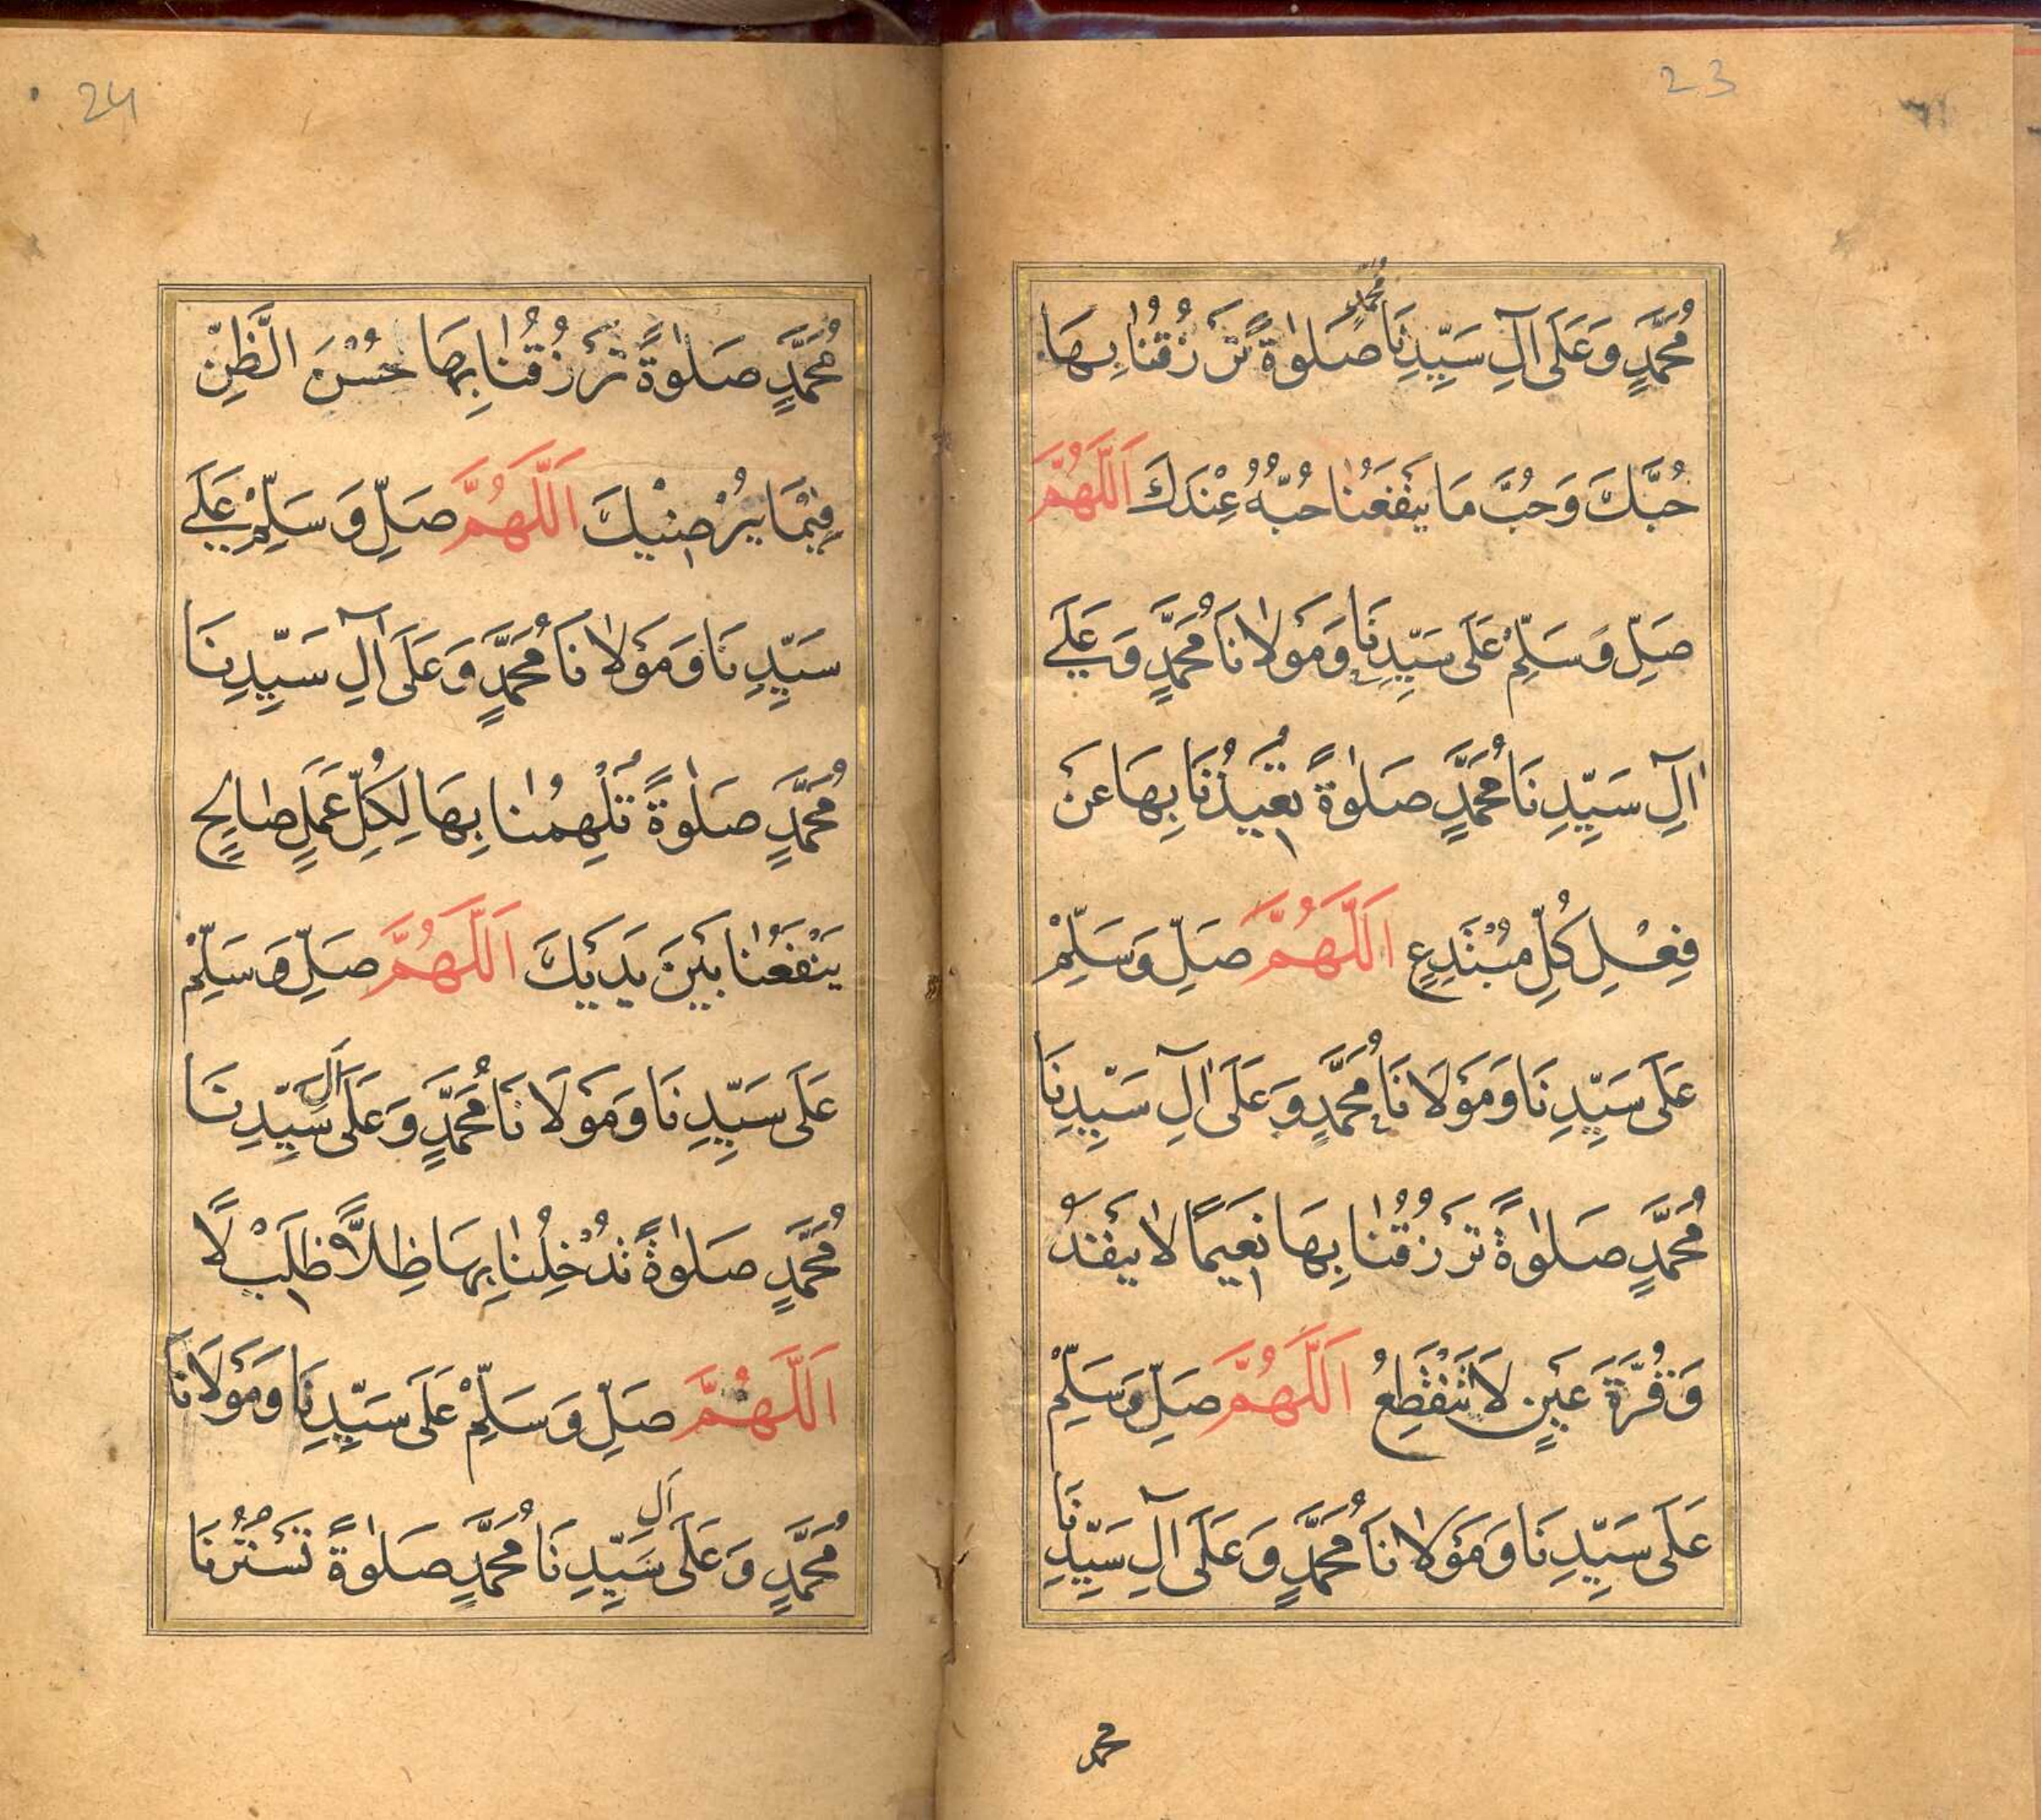 23
مُحَمَّدٍ وَعَلَى اٰلِ سَيِّدِنَا مُحَمَّدٍ صَلٰوةً تَرْزُقُنَا بِهَا
حُبَّكَ وَحُبَّ مَا يَنْفَعُنَا حُبُّهُ عِنْدَكَ اَللّٰهُمَّ
صَلِّ وَسَلِّمْ عَلَى سَيِّدِنَا وَمَوْلَانَا مُحَمَّدٍ وَعَلَى
اٰلِ سَيِّدِنَا مُحَمَّدٍ صَلٰوةً تُعِيْذُنَا بِهَا عَنْ
فِعْلِ كُلِّ مُبْتَدِعٍ اَللّٰهُمَّ صَلِّ وَسَلِّمْ
عَلَى سَيِّدِنَا وَمَوْلَانَا مُحَمَّدٍ وَعَلَى اٰلِ سَيِّدِنَا
مُحَمَّدٍ صَلٰوةً تَرْزُقُنَا بِهَا نَعِيْمًا لَا يَنْفَدُ
وَقُرَّةَ عَيْنٍ لَا تَنْقَطِعُ اَللّٰهُمَّ صَلِّ وَسَلِّمْ
عَلَى سَيِّدِنَا وَمَوْلَانَا مُحَمَّدٍ وَعَلَى اٰلِ سَيِّدِنَا
محمد
24
مُحَمَّدٍ صَلٰوةً تَرْزُقُنَا بِهَا حُسْنَ الظَّنِّ
فِيْمَا يُرْضِيْكَ اَللّٰهُمَّ صَلِّ وَسَلِّمْ عَلَى
سَيِّدِنَا وَمَوْلَانَا مُحَمَّدٍ وَعَلَى اٰلِ سَيِّدِنَا
مُحَمَّدٍ صَلٰوةً تُلْهِمُنَا بِهَا لِكُلِّ عَمَلٍ صَالِحٍ
يَنْفَعُنَا بَيْنَ يَدَيْكَ اَللّٰهُمَّ صَلِّ وَسَلِّمْ
عَلَى سَيِّدِنَا وَمَوْلَانَا مُحَمَّدٍ وَعَلَى اٰلِ سَيِّدِنَا
مُحَمَّدٍ صَلٰوةً تُدْخِلُنَا بِهَا ظِلًّا ظَلِيْلًا
اَللّٰهُمَّ صَلِّ وَسَلِّمْ عَلَى سَيِّدِنَا وَمَوْلَانَا
مُحَمَّدٍ وَعَلَى اٰلِ سَيِّدِنَا مُحَمَّدٍ صَلٰوةً تَسْتُرُنَا